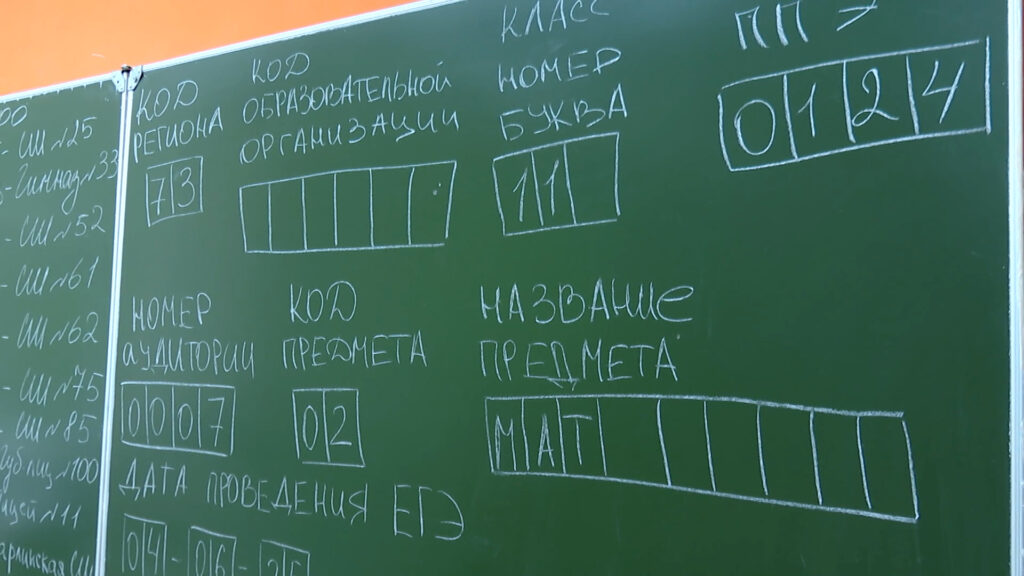 СШ №25
Гимназ №33
- СШ №52
- СШ №61
- СШ №62
- СШ №75
СШ №85
№100
№11
СШ
КОД
РЕГИОНА
73
КОД
ОБРАЗОВАТЕЛЬНОЙ
ОРГАНИЗАЦИИ
КЛАСС
НОМЕР
БУКВА
11
ППЭ
0124
НОМЕР
АУДИТОРИИ
0007
КОД
ПРЕДМЕТА
02
НАЗВАНИЕ
ПРЕДМЕТА
МАТ
ДАТА ПРОВЕДЕНИЯ ЕГЭ
04-06-25